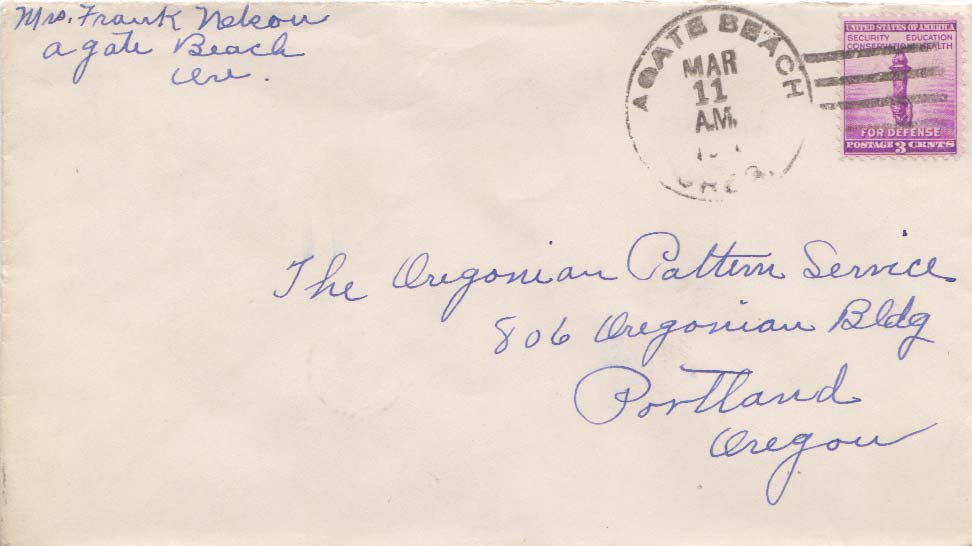 Mrs. Frank Nelson
Agate Beach
Ore.
AGATE BEACH
MAR
11
A.M.
OREG.
UNITED STATES OF AMERICA
SECURITY EDUCATION
CONSERVATION HEALTH
FOR DEFENSE
POSTAGE 3 CENTS
The Oregonian Pattern Service
806 Oregonian Bldg
Portland
Oregon